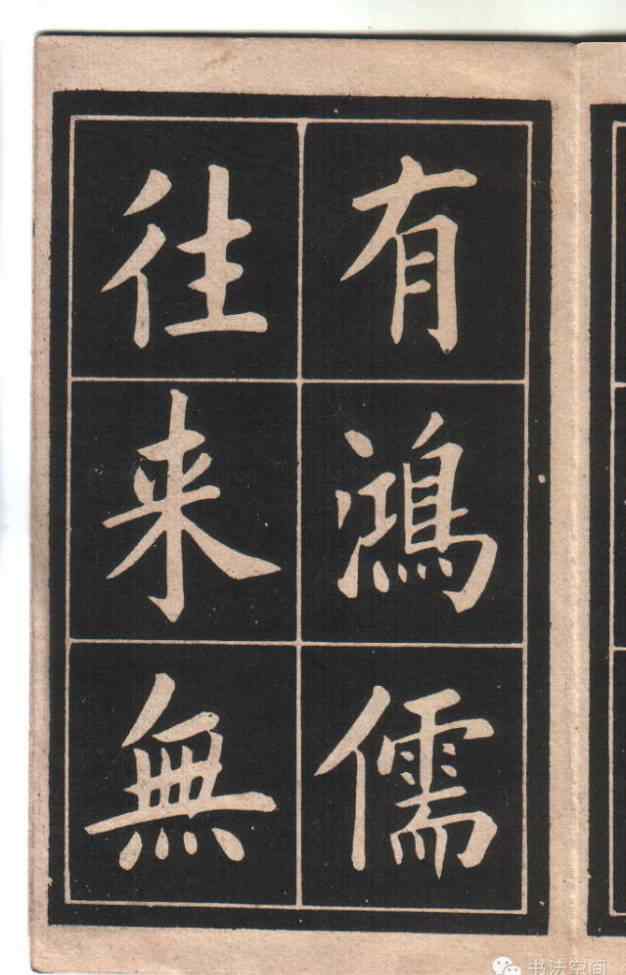 有鴻儒
往来無
书法空间